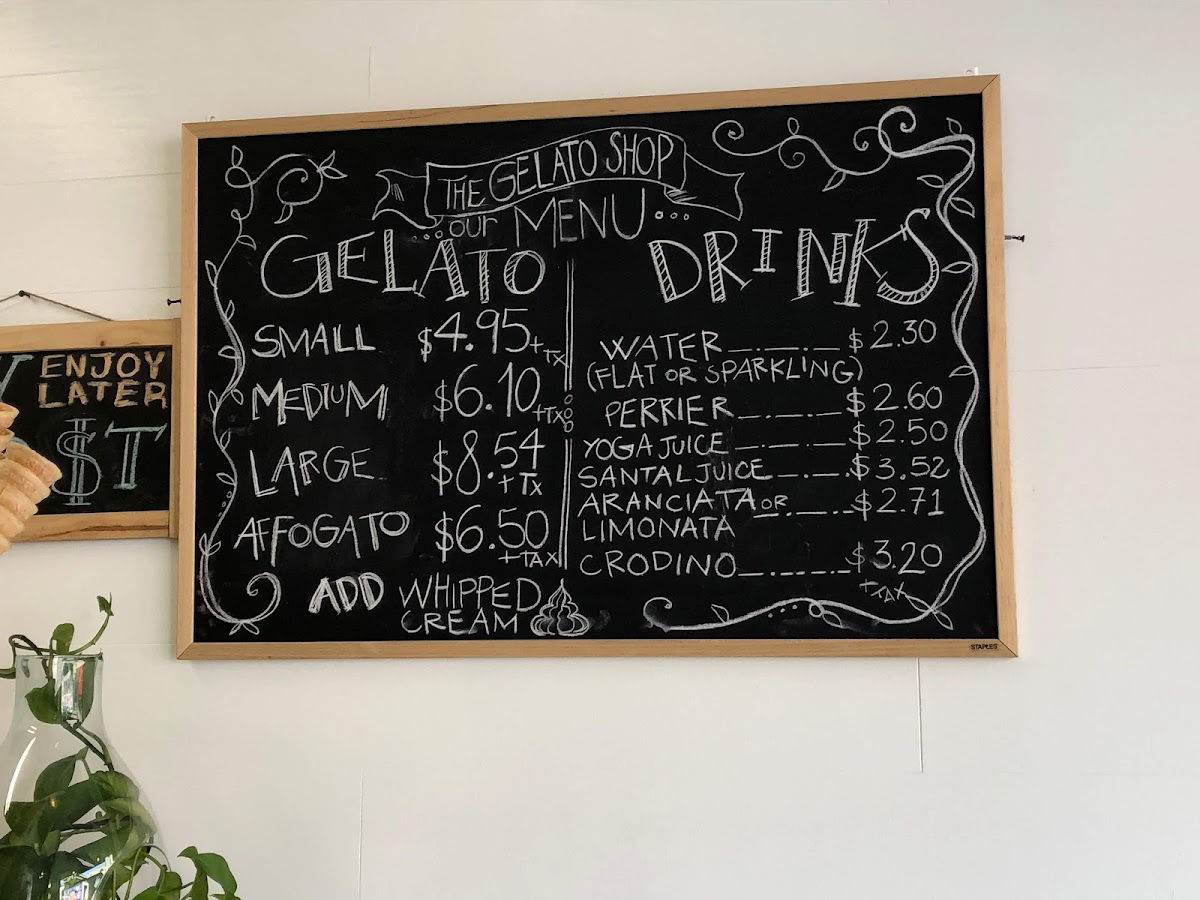 THE GELATO SHOP
...our MENU...
GELATO
SMALL $4.95+tx
MEDIUM $6.10+Tx
LARGE $8.54+Tx
AFFOGATO $6.50+TAX
ADD WHIPPED
CREAM
DRINKS
WATER $2.30
(FLAT OR SPARKLING)
PERRIER $2.60
YOGA JUICE $2.50
SANTAL JUICE $3.52
ARANCIATA OR $2.71
LIMONATA
CRODINO $3.20
+TAX
STAPLES
ENJOY
LATER